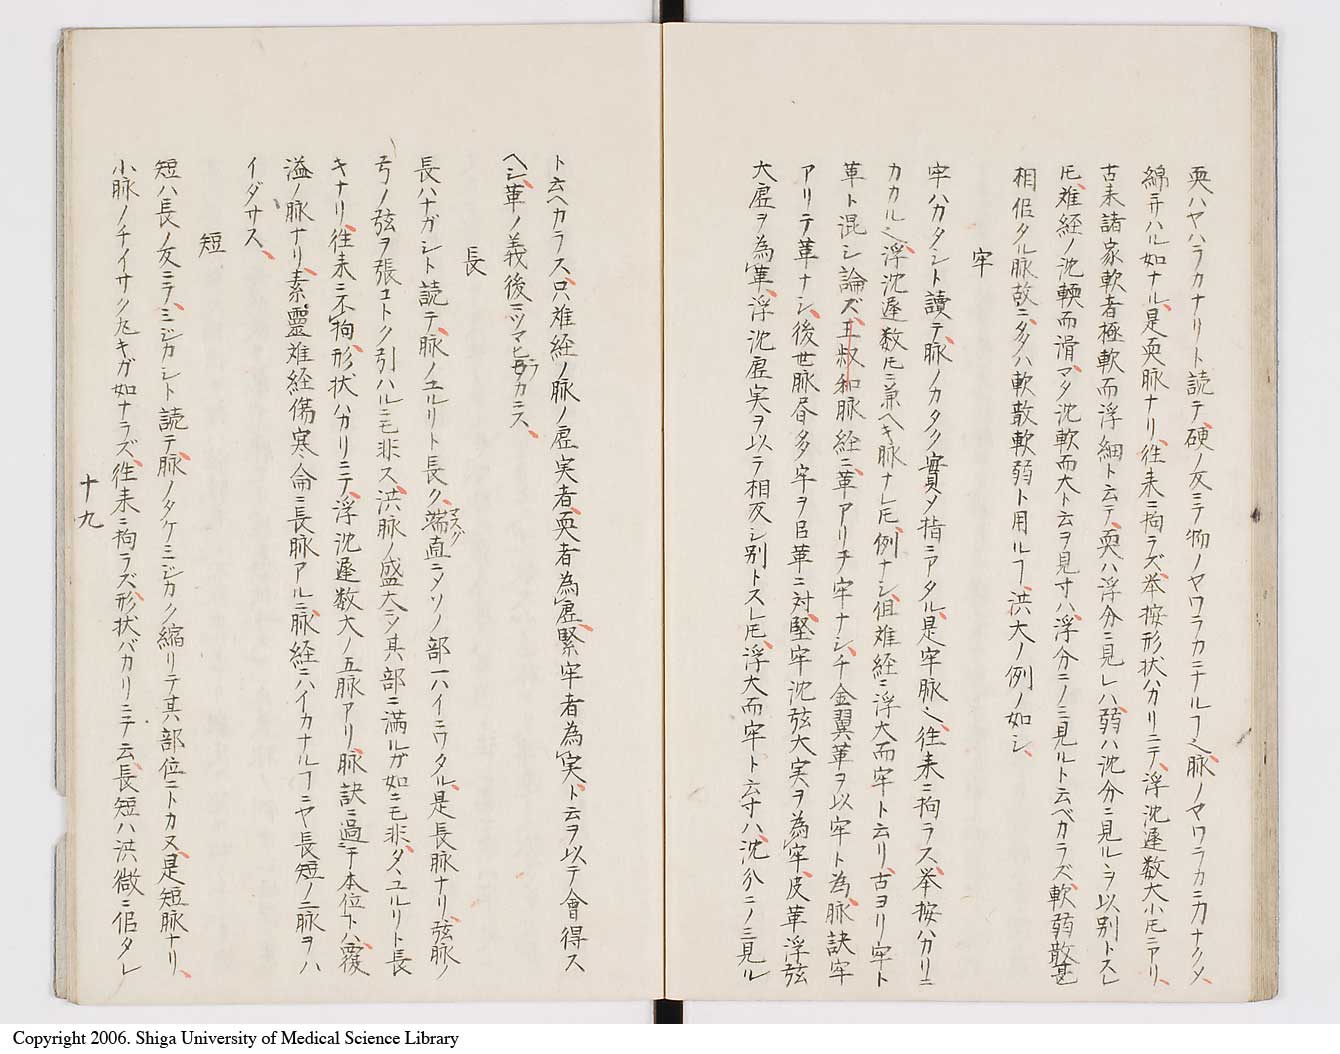 耎ハヤハラカナリト読テ硬ノ反ニテ物ノヤワラカニナルヿヘ脉ノヤワラカニ力ナクメ
綿ニサハル如ナル是耎脉ナリ往来ニ拘ラズ举按形状ハカリニテ浮沈遲数大小𪜈ニアリ
古来諸家軟者極軟而浮細ト云テ耎ハ浮分ニ見レハ弱ハ沈分ニ見ルヲ以別トスレ
𪜈難経ノ沈輭而滑マタ沈軟而大ト云ヲ見寸ハ浮分ニノミ見ルト云ベカラズ軟弱散甚
相佀タル脉故ニ多ハ軟散軟弱ト用ルヿ洪大ノ例ノ如シ
牢
牢ハカタシト讀テ脉ノカタク實メ指ニアタル是牢脉ヘ往来ニ拘ラス举按ハカリニ
カカルヘ浮沈遲数𪜈ニ兼ヘキ脉ナレ𪜈例ナシ但難経ニ浮大而牢ト云リ古ヨリ牢ト
革ト混シ論ズ王叔和脉経ニ革アリテ牢ナシ千金翼革ヲ以牢ト為脉訣牢
アリテ革ナシ後世脉昏多牢ヲ㠯革ニ対堅牢沈弦大実ヲ為牢皮革浮弦
大虚ヲ為革浮沈虚実ヲ以テ相反シ別トスレ𪜈浮大而牢ト云寸ハ沈分ニノミ見ル
ト云ヘカラス只难経ノ脉ノ虚実者耎者為虚緊牢者為実ト云ヲ以テ會得ス
ヘシ革ノ義後ニツマヒラカニス
長
長ハナガシト読テ脉ノユルリト長ク端直ニメソノ部一ハイニワタル是長脉ナリ弦脉ノ
弓ノ弦ヲ張コトク引ハルニモ非ス洪脉ノ盛大ニシ其部ニ満ルガ如ニモ非ダユルリト長
キナリ往来ニ不拘形状ハカリニテ浮沈遲数大ノ五脉アリ脉訣ニ過于本位ト八覆
溢ノ脉ナリ素靈难経傷寒侖ニ長脉アルニ脉経ニハイカナルヿニヤ長短ノ二脉ヲハ
イダサス
短
短ハ長ノ反ニテミジカシト読テ脉ノタケミジカク縮リテ其部位ニトカヌ是短脉ナリ
小脉ノチイサク九キガ如ナラズ往来ニ拘ラズ形状バカリニテ云長短ハ洪微ニ佀タレ
十九
Copyright 2006. Shiga University of Medical Science Library